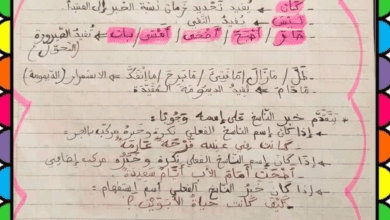 - كان ← يفيد تحديد زمان نسبة الخبر إلى المبتدأ
- ليس ← يفيد النفي
- صار / أصبح / أضحى / أمسى / بات ← يفيد الصيرورة
(التحول)
مازال / مافتئ / مابرح / ماانفك ← الاستمرار (الديمومة)
- مادام ← يفيد الديمومة المقيدة
- يتقدم خبر الناسخ على إسمه وجوبا :
← إذا كان إسم الناسخ الفعلي نكرة وخبره مركب بالجر :
كانت في عينيه فرحة عارمة
← إذا كان إسم الناسخ الفعلي نكرة وخبره مركب إضافي
أضحت أمام الأب أيام سعيدة
← إذا كان خبر الناسخ الفعلي اسم إستفهام :
كيف كانت حياة الأبوين ؟